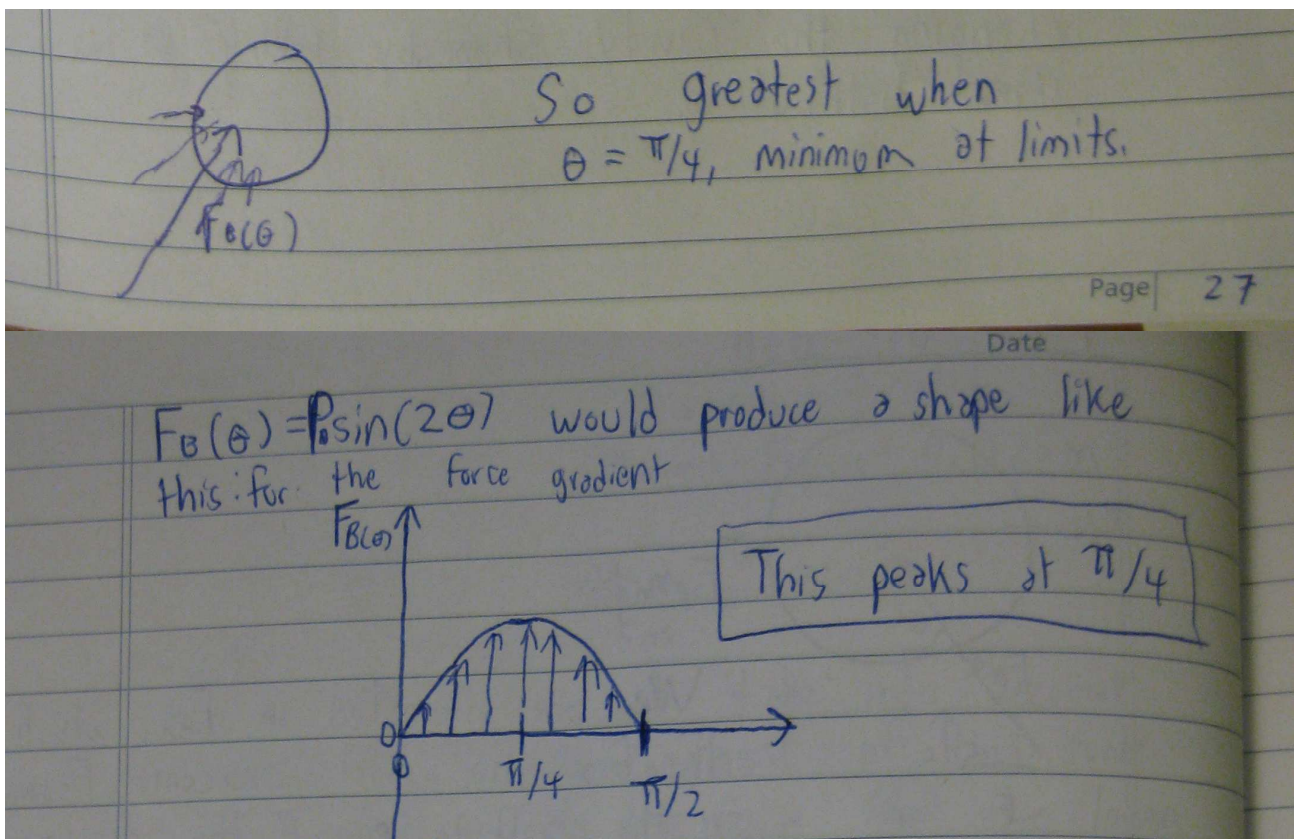 So greatest when
θ = π/4, minimum at limits.
F_B(θ)
Page 27
Date
F_B(θ) = P₀sin(2θ) would produce a shape like
this: for the force gradient
F_B(θ)
This peaks at π/4
0
0
π/4
π/2